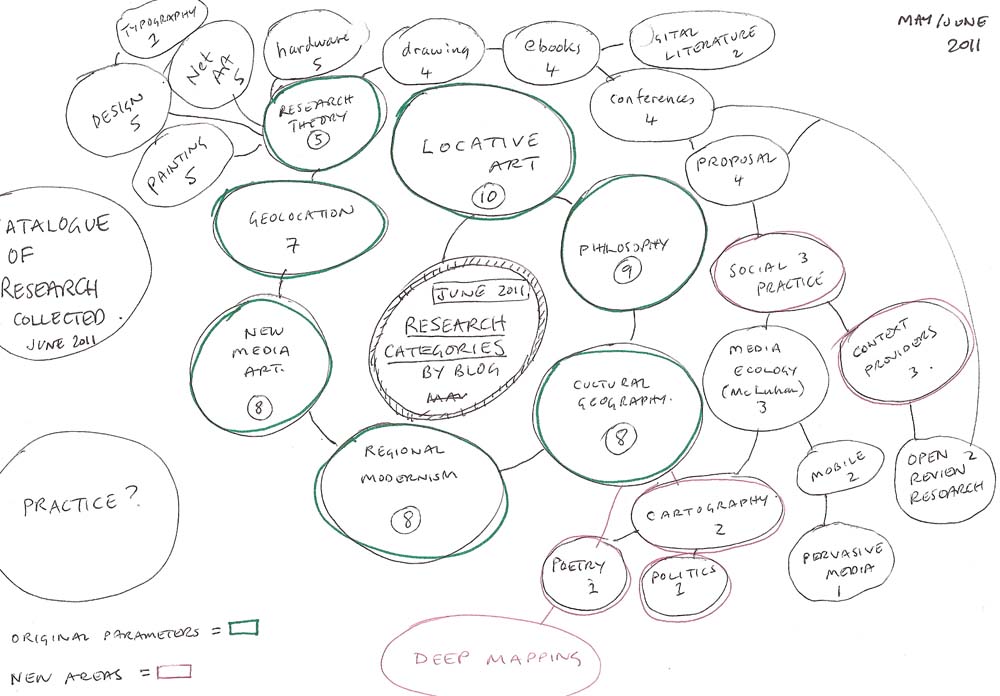 MAY/JUNE
2011
TYPOGRAPHY
1
Net
Art
5
hardware
5
drawing
4
ebooks
4
DIGITAL
LITERATURE
2
DESIGN
5
PAINTING
5
RESEARCH
THEORY
5
LOCATIVE
ART
10
conferences
4
PROPOSAL
4
GEOLOCATION
7
PHILOSOPHY
9
SOCIAL 3
PRACTICE
ATALOGUE
OF
RESEARCH
COLLECTED.
JUNE 2011
JUNE 2011
RESEARCH
CATEGORIES
BY BLOG
NEW
MEDIA
ART.
8
CULTURAL
GEOGRAPHY.
8
MEDIA
ECOLOGY
(McLuhan)
3
CONTEXT
PROVIDERS
3.
REGIONAL
MODERNISM
8
MOBILE
2
OPEN 2
REVIEW
RESEARCH
PRACTICE?
CARTOGRAPHY.
2
POETRY
1
POLITICS
1
PERVASIVE
MEDIA
1
DEEP MAPPING
ORIGINAL PARAMETERS =
NEW AREAS =